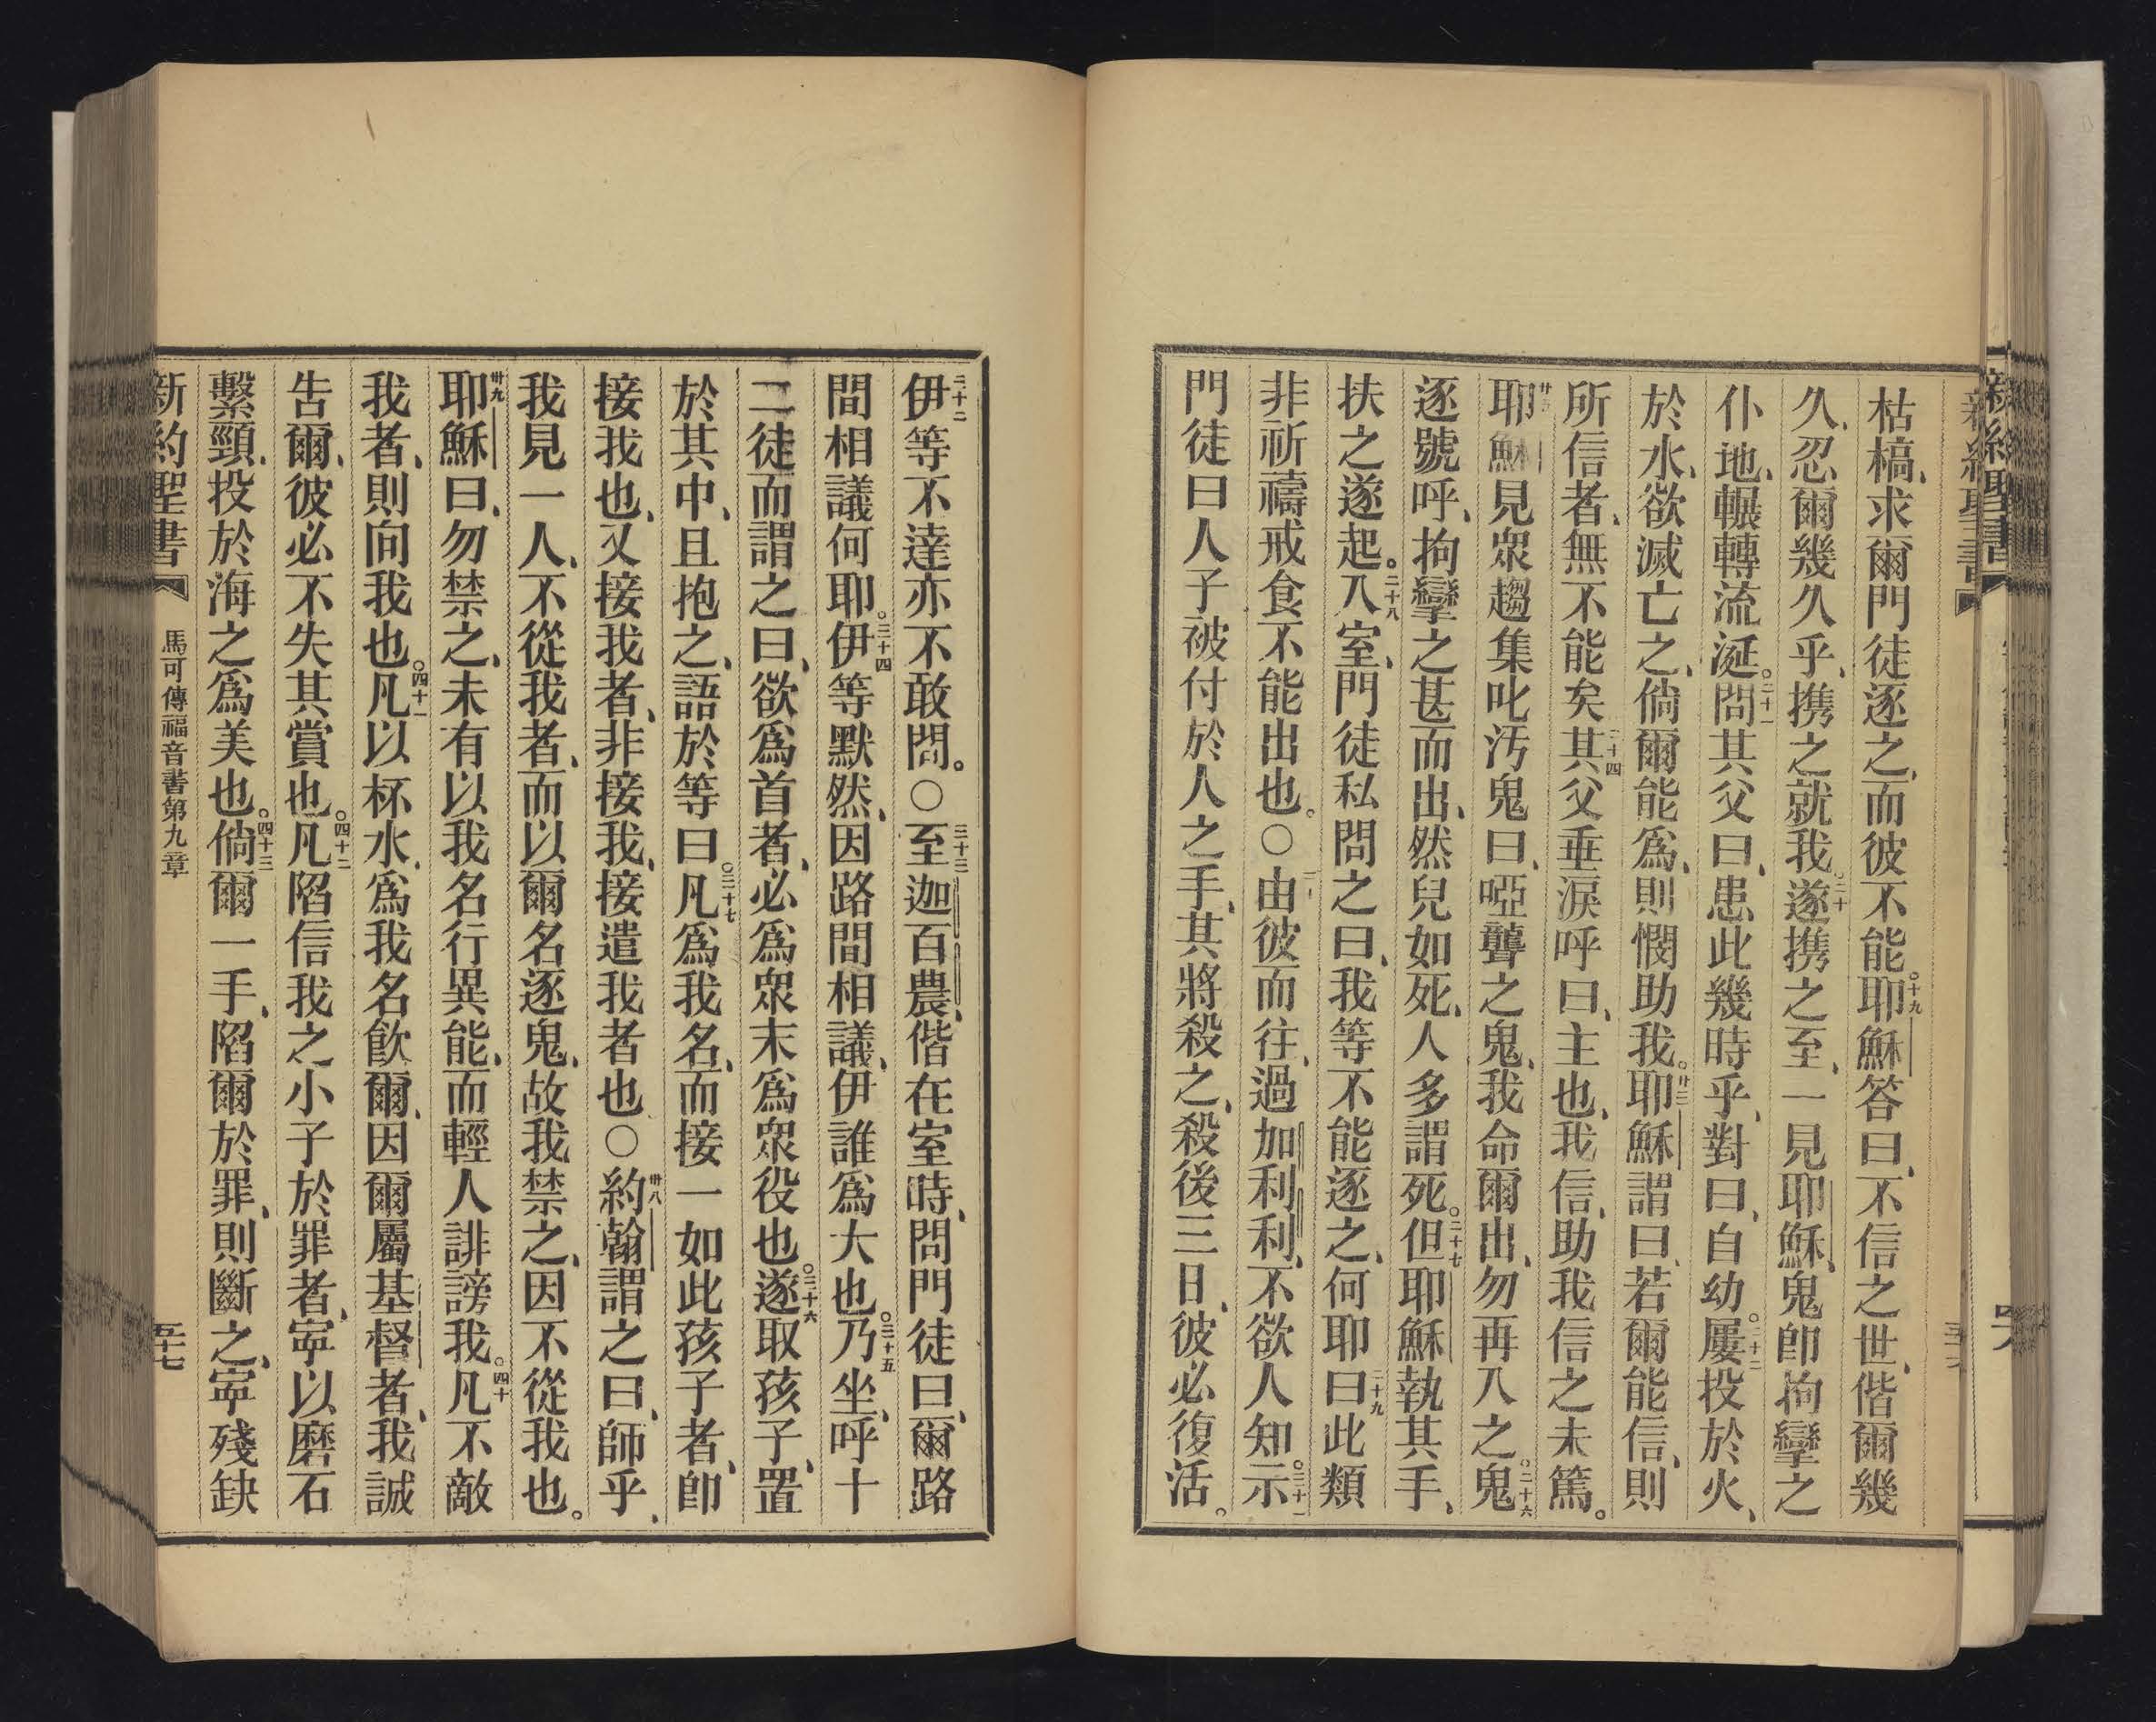 枯槁、求爾門徒逐之、而彼不能。十九耶穌答曰、不信之世、偕爾幾
久、忍爾幾久乎、携之就我。二十遂携之至、一見耶穌、鬼卽拘攣之
仆地、輾轉流涎。二十一問其父曰、患此幾時乎、對曰、自幼。二十二屢投於火、
於水、欲滅亡之、倘爾能爲、則憫助我。廿三耶穌謂曰、若爾能信、則
所信者、無不能矣二十四其父垂淚呼曰、主也、我信、助我信之未篤。
耶穌見眾趨集叱汚鬼曰、啞聾之鬼、我命爾出、勿再入之。二十六鬼
逐號呼、拘攣之甚而出、然兒如死、人多謂死。二十七但耶穌執其手、
扶之遂起。二十八入室、門徒私問之曰、我等不能逐之、何耶二十九曰此類
非祈禱戒食不能出也。〇由彼而往、過加利利、不欲人知。三十一示
門徒曰人子被付於人之手、其將殺之、殺後三日、彼必復活。
三十二伊等不達亦不敢問。〇三十三至迦百農、偕在室時、問門徒曰、爾路
間相議何耶。三十四伊等默然、因路間相議、伊誰爲大也。三十五乃坐、呼十
二徒而謂之曰、欲爲首者、必爲眾末爲眾役也。三十六遂取孩子、置
於其中、且抱之、語於等曰。三十七凡爲我名、而接一如此孩子者、卽
接我也、又接我者、非接我、接遣我者也〇卅八約翰謂之曰、師乎、
我見一人、不從我者、而以爾名逐鬼、故我禁之、因不從我也。
卅九耶穌曰、勿禁之、未有以我名行異能、而輕人誹謗我。四十凡不敵
我者、則向我也。四十一凡以杯水、爲我名飲爾、因爾屬基督者、我誠
吿爾、彼必不失其賞也。四十二凡陷信我之小子於罪者、寧以磨石
繫頸、投於海之爲美也。四十三倘爾一手、陷爾於罪、則斷之、寧殘缺
新約聖書 馬可傳福音書第九章 五十七